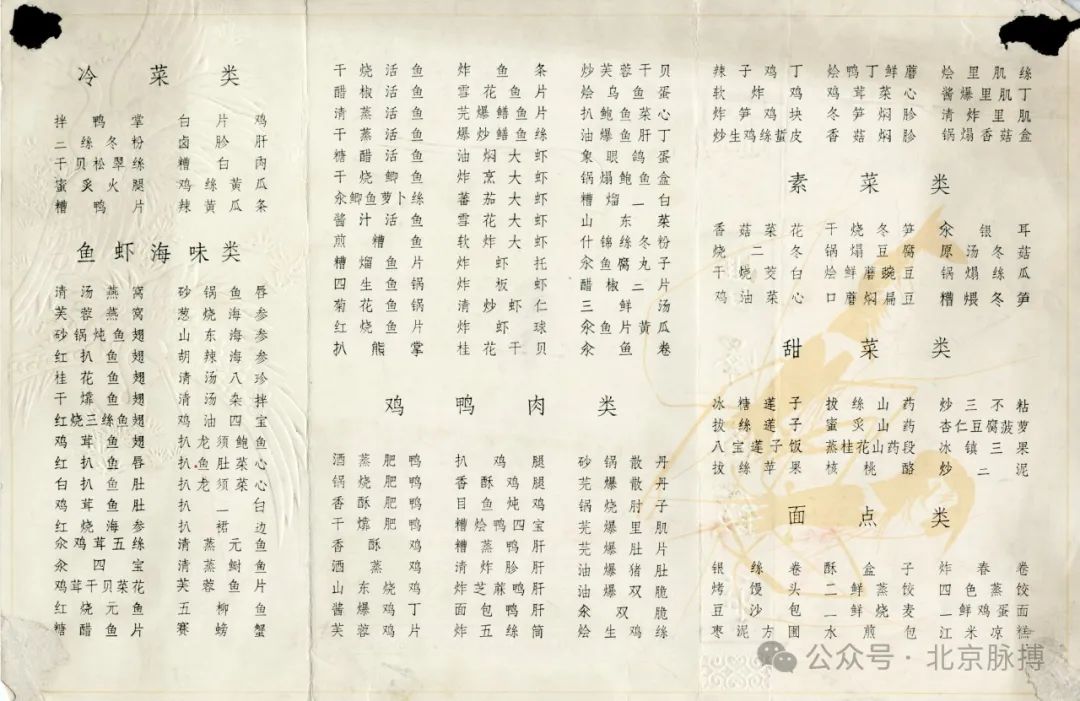 冷菜类
拌鸭掌 白片鸡
二丝冬粉 卤胗肝
干贝松翠丝 糟白肉
蜜炙火腿 鸡丝黄瓜
糟鸭片 辣黄瓜条
鱼虾海味类
清汤燕窝 砂锅鱼唇
芙蓉燕窝 葱烧海参
砂锅炖鱼翅 山东海参
红扒鱼翅 胡辣海参
桂花鱼翅 清汤八珍
干㸆鱼翅 清汤杂拌
红烧三丝鱼翅 鸡油四宝
鸡茸鱼翅 扒龙须鲍鱼
红扒鱼唇 扒鱼肚菜心
白扒鱼肚 扒龙须菜
鸡茸鱼肚 扒二白
红烧海参 扒裙边
氽鸡茸五丝 清蒸元鱼
氽四宝 清蒸鲥鱼
鸡茸干贝菜花 芙蓉鱼片
红烧元鱼 五柳鱼
糖醋鱼片 赛螃蟹
干烧活鱼 炸鱼条 炒芙蓉干贝
醋椒活鱼 雪花鱼片 烩乌鱼蛋
清蒸活鱼 芫爆鳝鱼片 扒鲍鱼菜心
干蒸活鱼 爆炒鳝鱼丝 油爆鱼肝丁
糖醋活鱼 油焖大虾 象眼鸽蛋
干烧鲫鱼 炸烹大虾 锅塌鲍鱼盒
氽鲫鱼萝卜丝 蕃茄大虾 糟熘二白
酱汁活鱼 雪花大虾 山东菜
煎糟鱼 软炸大虾 什锦丝冬粉
糟熘鱼片 炸虾托 氽鱼腐丸子
四生鱼锅 炸板虾 醋椒二片
菊花鱼锅 清炒虾仁 三鲜汤
红烧鱼片 炸虾球 氽鱼片黄瓜
扒熊掌 桂花干贝 氽鱼卷
鸡鸭肉类
酒蒸肥鸭 扒鸡腿 砂锅散丹
锅烧肥鸭 香酥鸡腿 芫爆散丹
香酥肥鸭 目鱼炖鸡 锅烧肘子
干㸆肥鸭 糟烩鸭四宝 芫爆里肌
香酥鸡 糟蒸鸭肝 芫爆肚片
酒蒸鸡 清炸胗肝 油爆猪肚
山东烧鸡 炸芝麻鸭肝 油爆双脆
酱爆鸡丁 面包鸭肝 氽双脆
芙蓉鸡片 炸五丝筒 烩生鸡丝
辣子鸡丁 烩鸭丁鲜蘑 烩里肌丝
软炸鸡 鸡茸菜心 酱爆里肌丁
炸笋鸡块 冬笋焖胗 清炸里肌
炒生鸡丝蜇皮 香菇焖胗 锅塌香菇盒
素菜类
香菇菜花 干烧冬笋 氽银耳
烧二冬 锅塌豆腐 原汤冬菇
干烧茭白 烩鲜蘑豌豆 锅塌丝瓜
鸡油菜心 口蘑焖扁豆 糟煨冬笋
甜菜类
冰糖莲子 拔丝山药 炒三不粘
拔丝莲子 蜜炙山药 杏仁豆腐菠萝
八宝莲子饭 蒸桂花山药段 冰镇三果
拔丝苹果 核桃酪 炒二泥
面点类
银丝卷 酥盒子 炸春卷
烤馒头 三鲜蒸饺 四色蒸饺
豆沙包 三鲜烧麦 三鲜鸡蛋面
枣泥方圃 水煎包 江米凉糕
公众号·北京脉搏